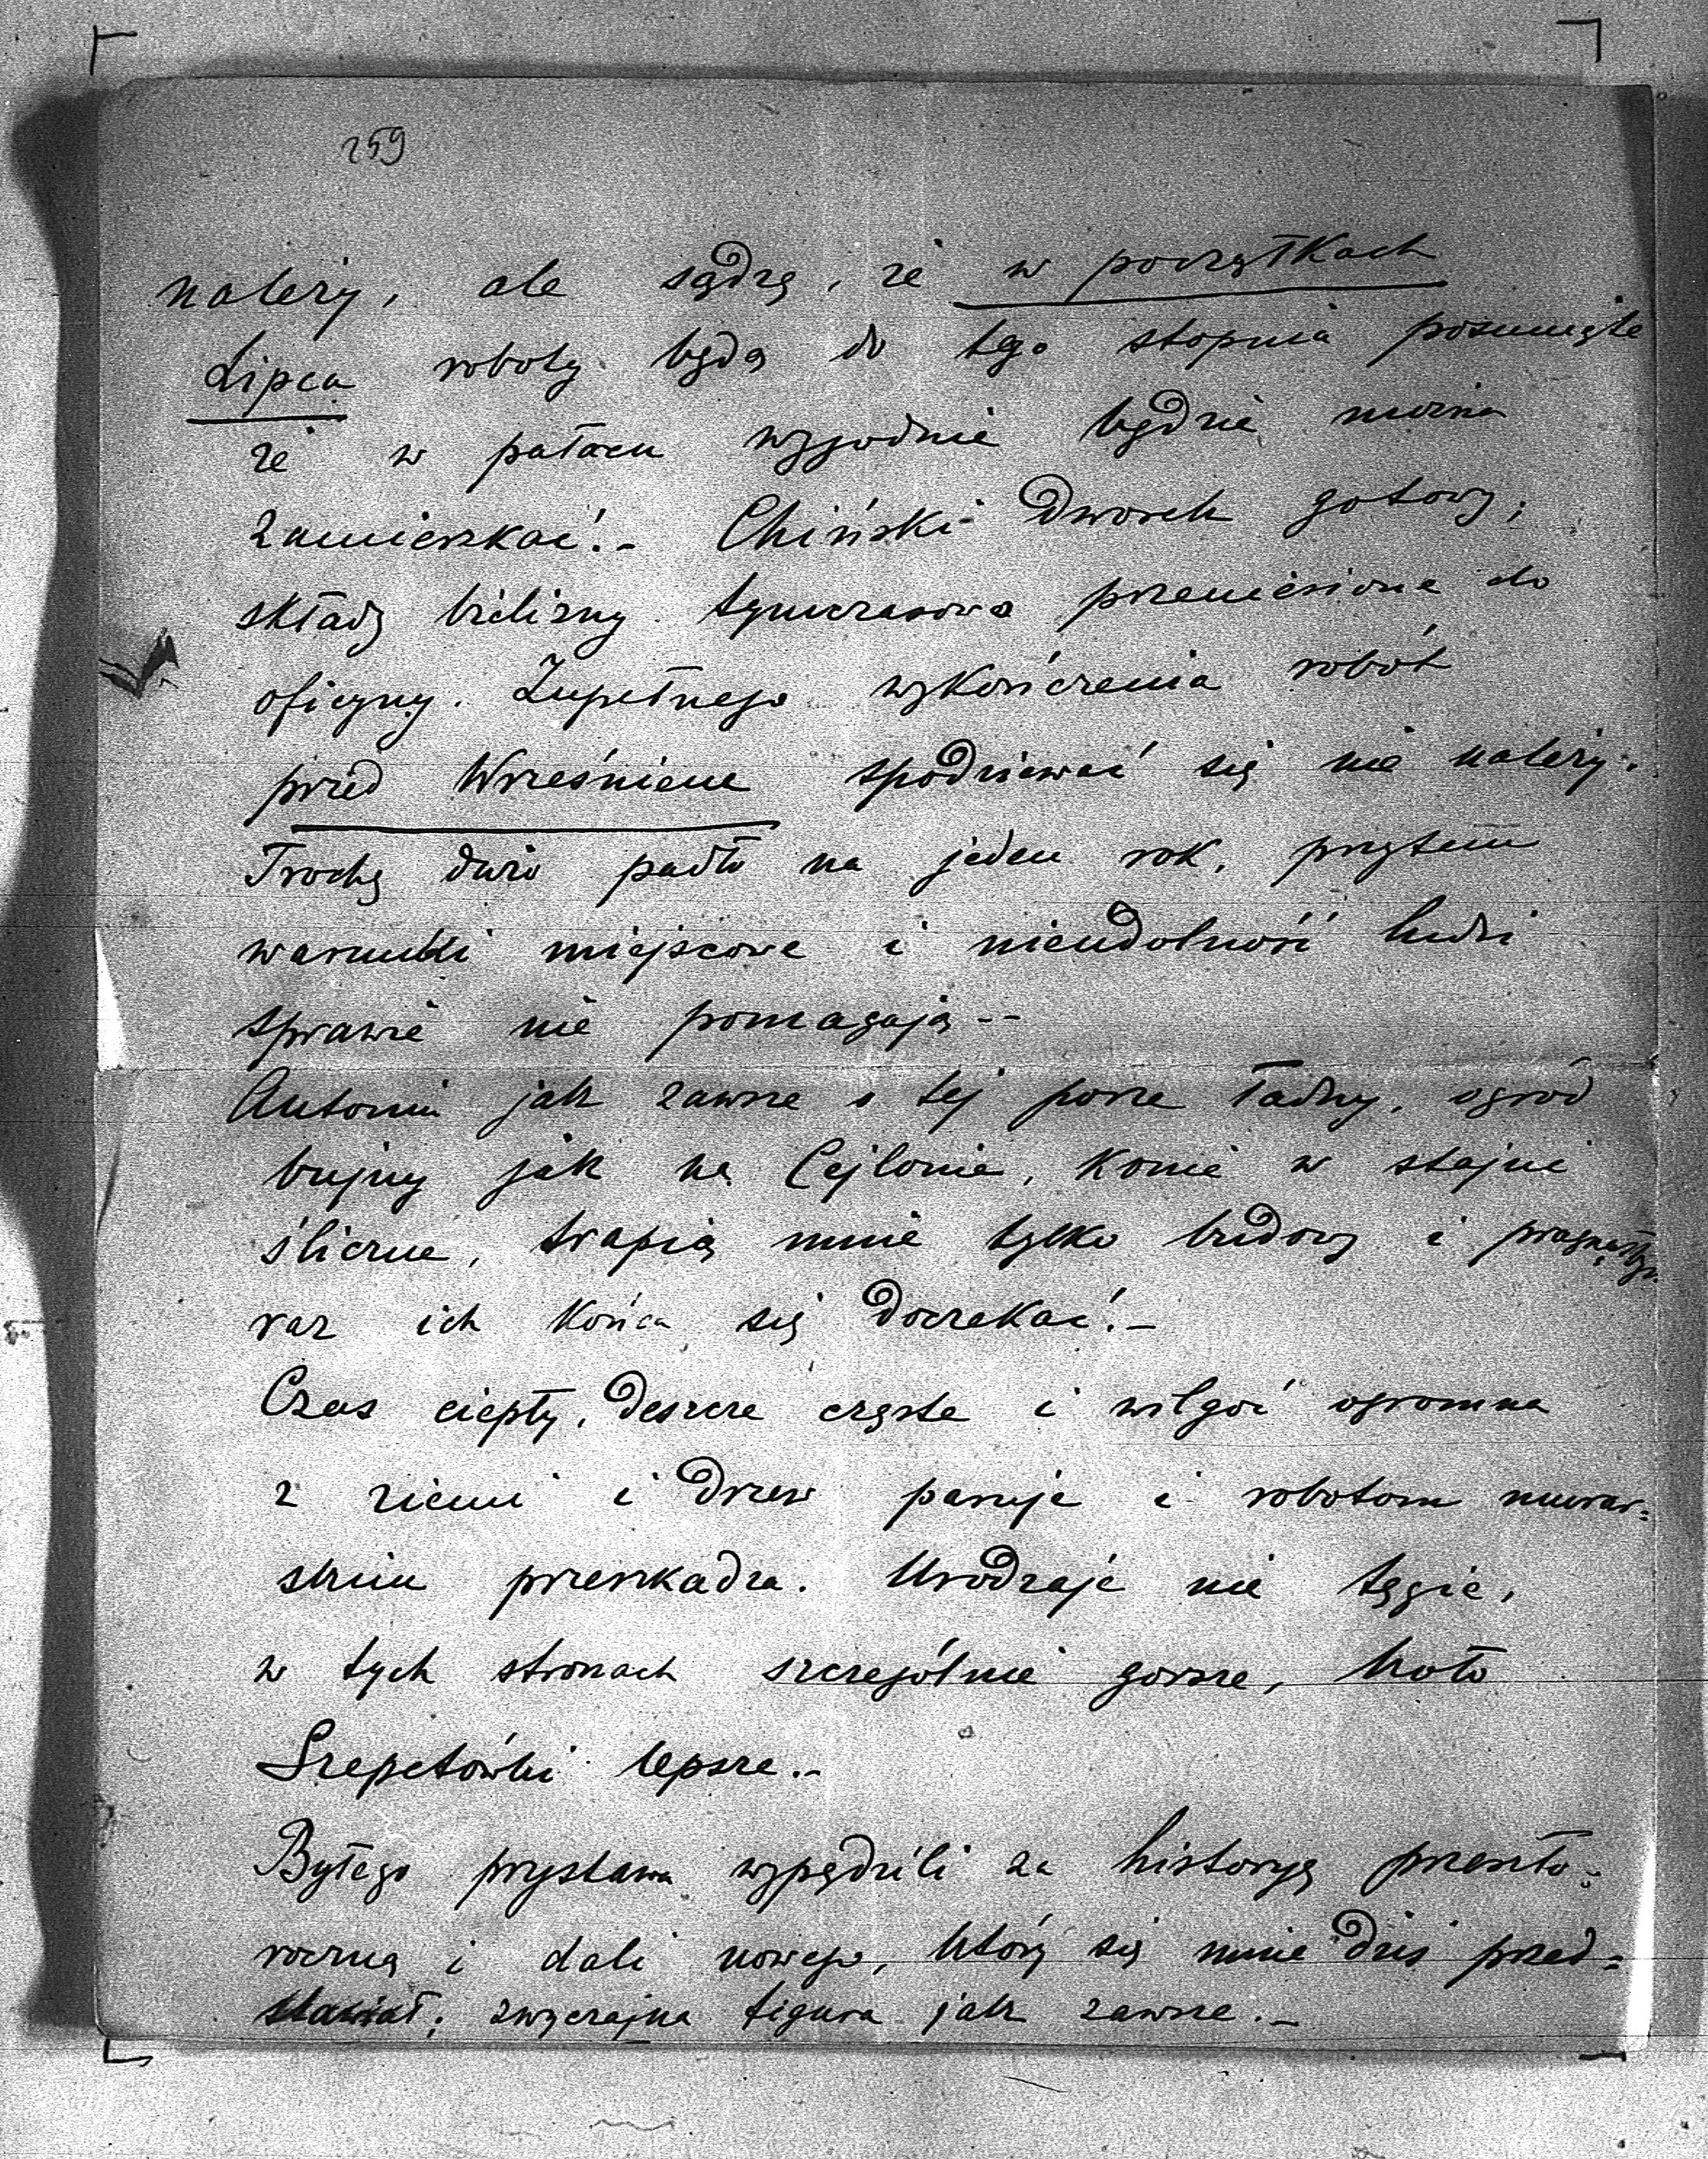 259
należy, ale sądzę, że w początkach
Lipca roboty będą do tego stopnia posunięte
że w pałacu wygodnie będzie można
zamieszkać.- Chiński dworek gotowy;
składy bielizny tymczasowo przeniesione do
oficyny. Zupełnego wykończenia robót
przed Wrześniem spodziewać się nie należy.
Trochę dużo padło na jeden rok, przytem
warunki miejscowe i nieudolność ludzi
sprawie nie pomagają--
Antonin jak zawsze o tej porze ładny, ogród
bujny jak na Cejlonie, konie w stajni
śliczne, trapią mnie tylko budowy i pragnąłbym
raz ich końca się doczekać.-
Czas ciepły, deszcze częste i wilgoć ogromna
z ziemi i drzew paruje i robotom mular=
skim przeszkadza. Urodzaje nie tęgie,
w tych stronach szczególnie gorsze, koło
Szepetówki lepsze.-
Byłego prystawa wypędzili za historyę przeszło=
roczną i dali nowego, który się mnie dziś przed=
stawiał; zwyczajna figura jak zawsze.-